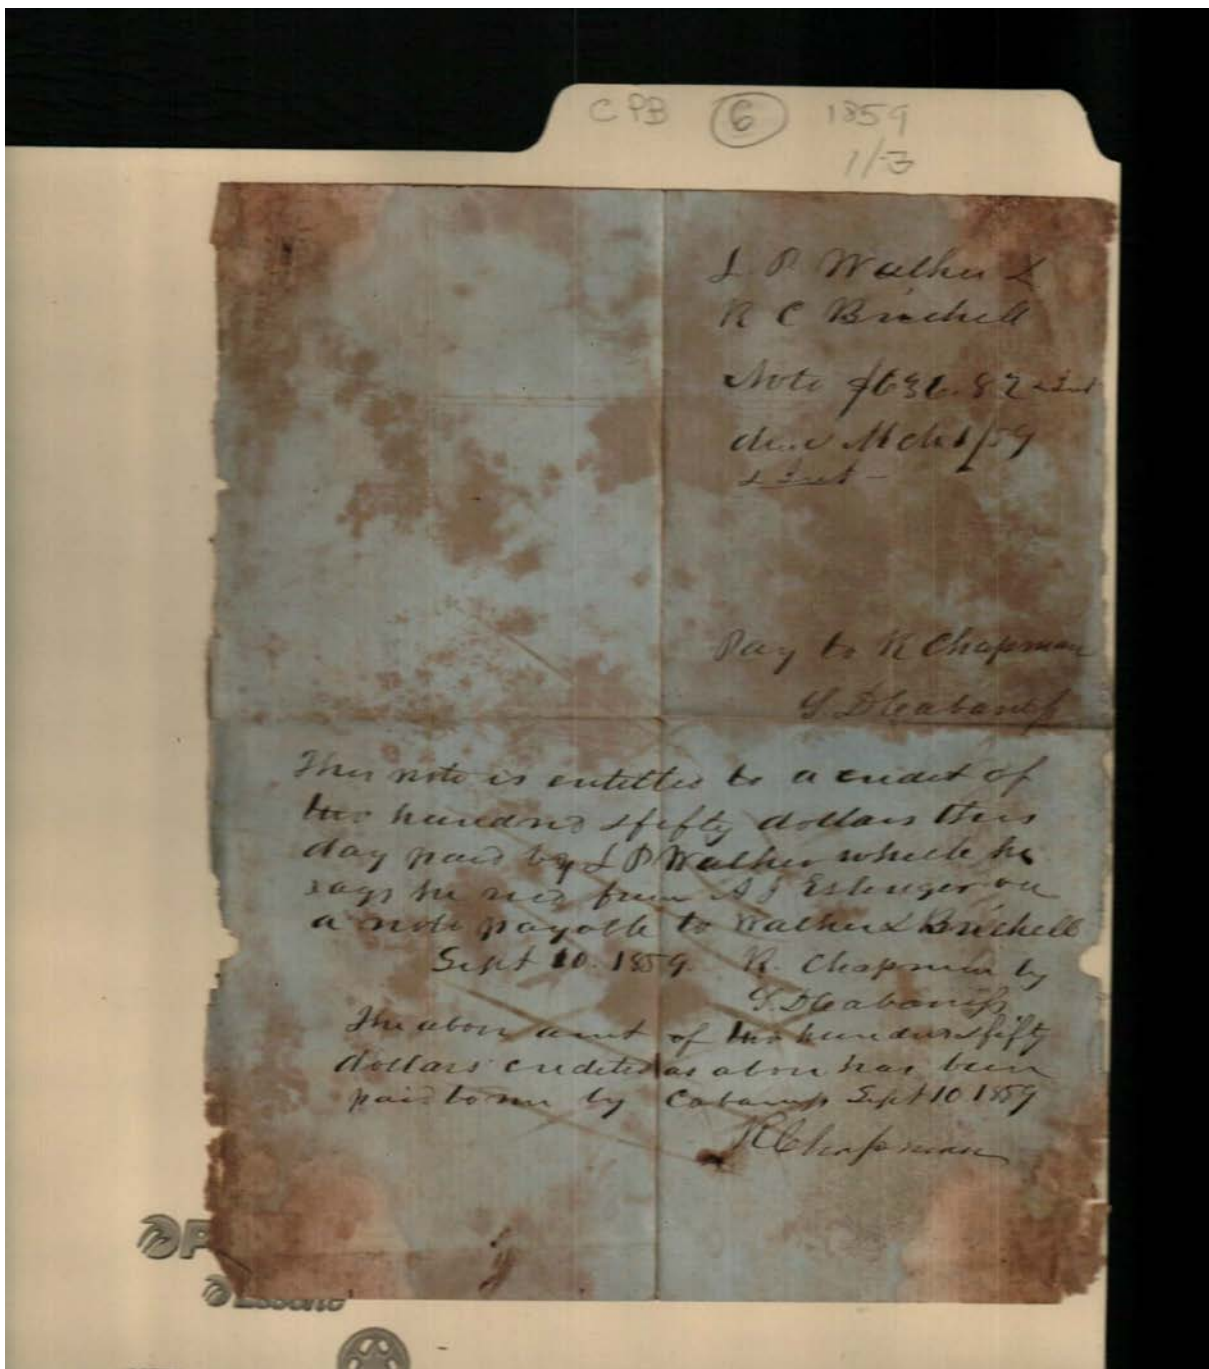 CPB 6 1859
1/3
L. P. Walker &
R C Brickell
Note $636.82
due Mch 1/59
& Int -
Pay to R Chapman
S. D Cabaniss
This note is entitled to a credit of
two hundred & fifty dollars this
day paid by L P Walker which he
says he recd from A J Eslinger on
a note payable to Walker & Brickell
Sept 10. 1859. R. Chapman by
S. D Cabaniss
The above amt of two hundred & fifty
dollars credited as above has been
paid to me by Cabaniss Sept 10 1859
R Chapman